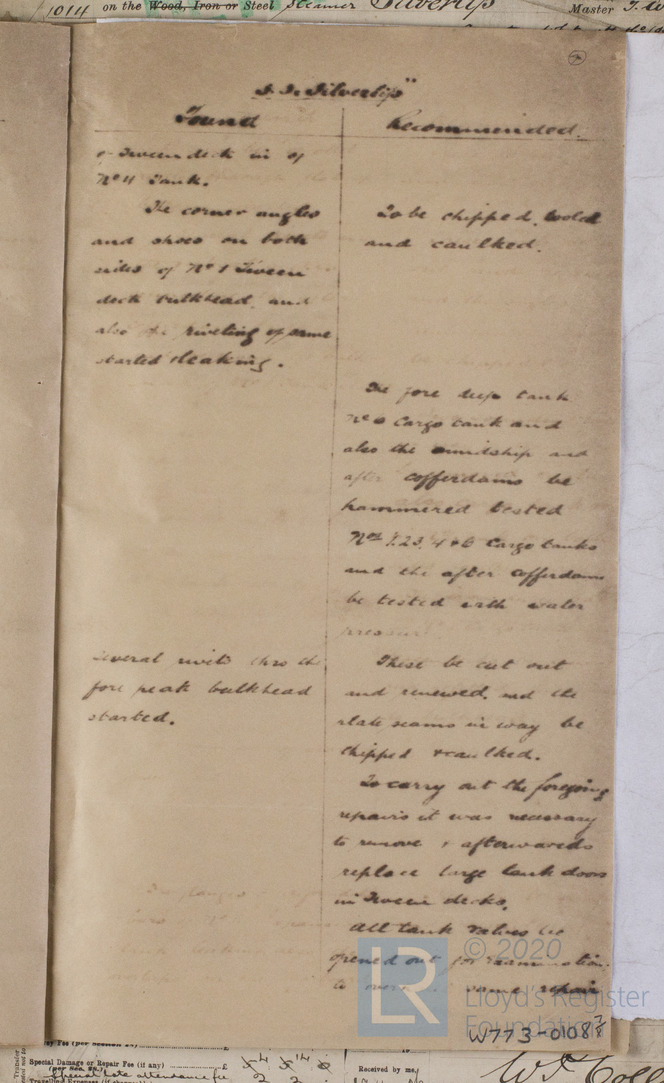 1014 on the Wood, Iron or Steel Steamer Silverlip Master
7
S.S. Silverlip"
Found
Recommended.
Tween deck in of
No 4 Tank.
The corner angles
and shoes on both
sides of No 1 Tween
deck bulkhead, and
also the riveting of same
started & leaking.
To be chipped,
and caulked.
The fore deep tank
Cargo tank and
also the amidship and
after cofferdams be
hammered tested
Nos 1,2,3,4 & 6 Cargo tanks
and the after cofferdam
be tested with water
pressure
Several rivets thro the
fore peak bulkhead
started.
These be cut out
and renewed, and the
plate seams in way be
chipped & caulked.
To carry out the foregoing
repairs it was necessary
to remove & afterwards
replace large tank doors
in Tween decks.
All tank valves be
opened out for examination
same repair
© 2020
LR
Lloyd's Register
Foundation
W773-0108
Special Damage or Repair Fee (if any)
£
Received by me,
Travelling Expenses (if chargeable)